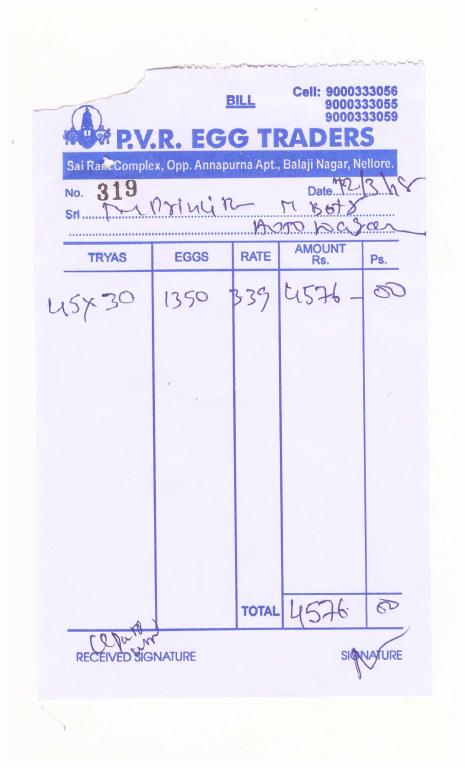 BILL
Cell: 9000333056
9000333055
9000333059
P.V.R. EGG TRADERS
Sai Ram Complex, Opp. Annapurna Apt., Balaji Nagar, Nellore.
No. 319 Date
Sri
TRYAS EGGS RATE AMOUNT Rs. Ps.
45x30 1350 339 4576 - 00
TOTAL 4576 00
RECEIVED SIGNATURE SIGNATURE